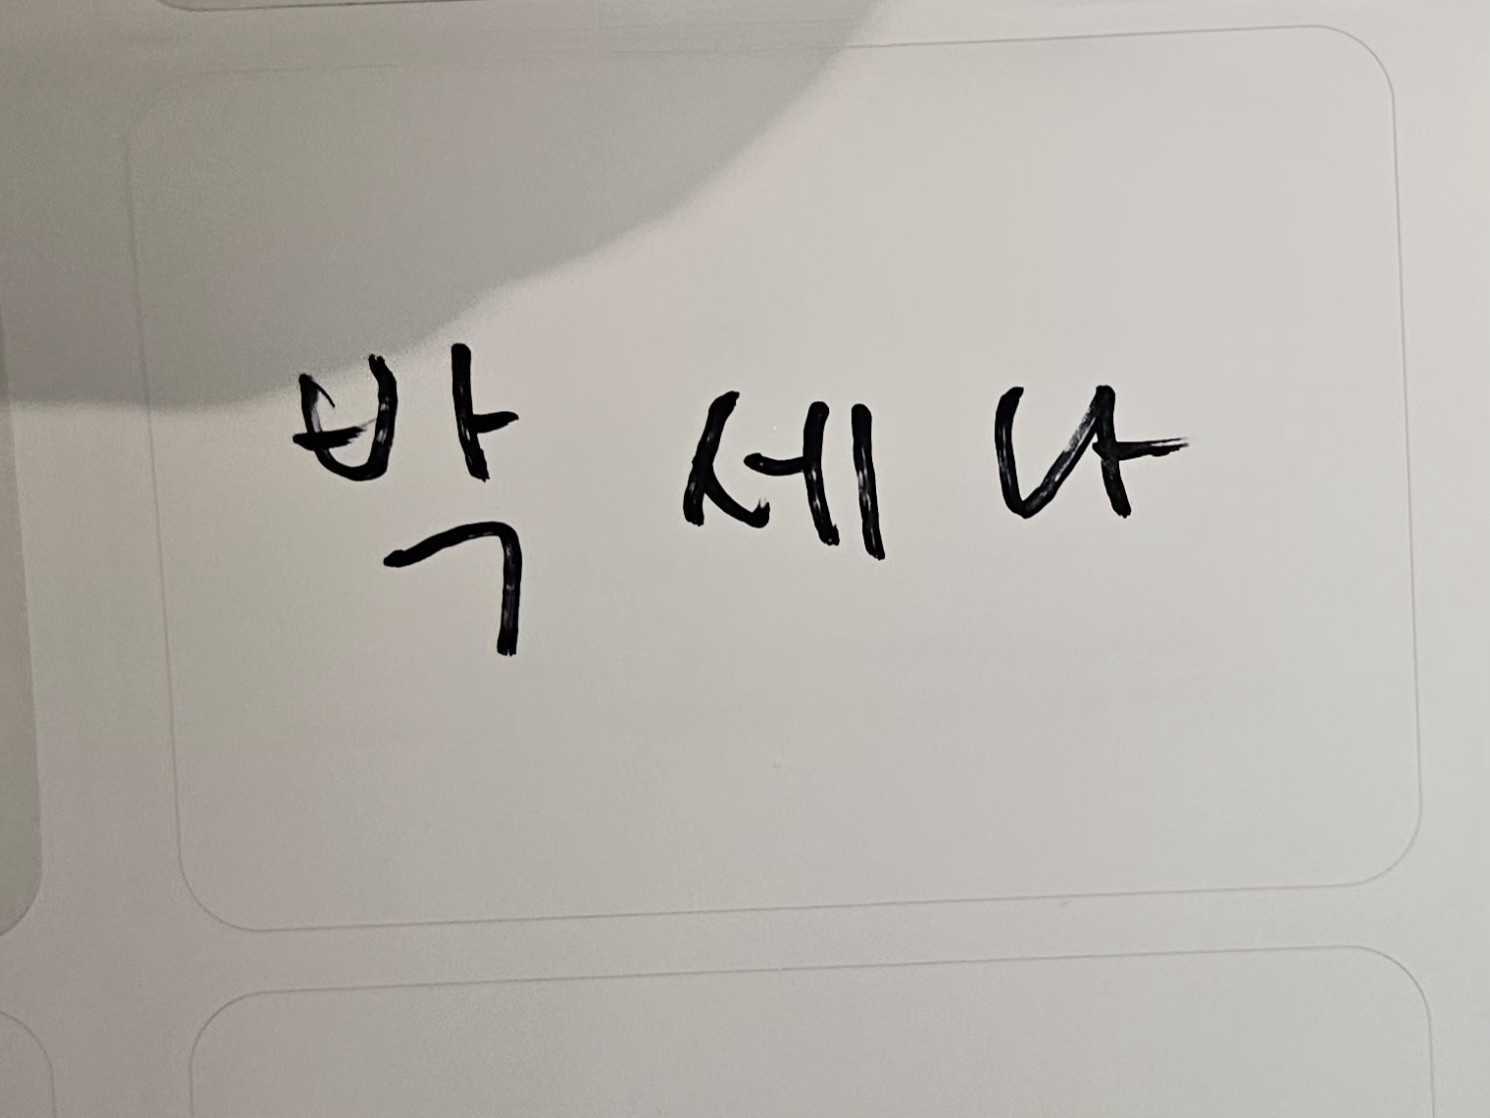 박 세 나